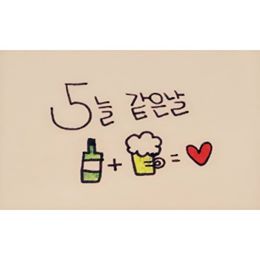 5늘 같은날
+ =